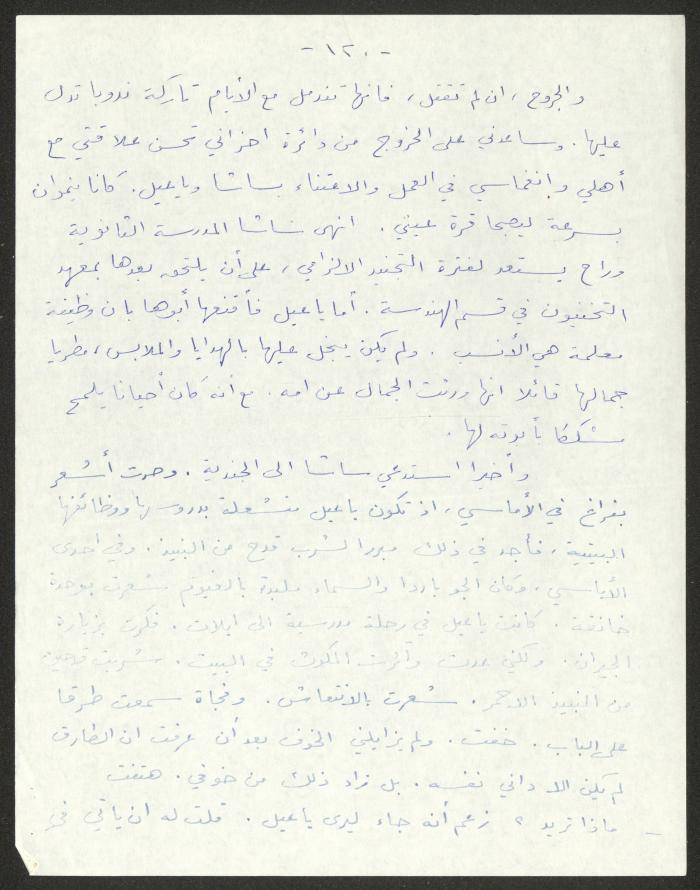 - ١٢٠ -
والجروح ، ان لم تقتل ، فانها تندمل مع الأيام تاركة ندوبا تدل
عليها . وساعدني على الخروج من دائرة احزاني تحسن علاقتي مع
أهلي وانغماسي في العمل والاعتناء بساشا وياعيل . كانا ينموان
بسرعة ليصبحا قرة عيني . انهى ساشا المدرسة الثانوية
وراح يستعد لفترة التجنيد الالزامي ، على أن يلتحق بعدها بمعهد
التخنيون في قسم الهندسة . أما ياعيل فأقنعها أبوها بان وظيفة
معلمة هي الأنسب . ولم يكن يبخل عليها بالهدايا والملابس ، مطريا
جمالها قائلا انها ورثت الجمال عن امه . مع أنه كان أحيانا يلمح
مشككا بأبوته لها .
وأخيرا استدعي ساشا الى الجندية . وصرت أشعر
بفراغ في الأماسي ، اذ تكون ياعيل منشغلة بدروسها ووظائفها
البيتية ، فأجد في ذلك مبررا لشرب قدح من النبيذ . وفي احدى
الأماسي ، وكان الجو باردا والسماء ملبدة بالغيوم شعرت بوحدة
خانقة . كانت ياعيل في رحلة مدرسية الى ايلات . فكرت بزيارة
الجيران . ولكني عدت وآثرت المكوث في البيت . شربت قدحين
من النبيذ الاحمر . شعرت بالانتعاش . وفجأة سمعت طرقا
على الباب . خفت . ولم يزايلني الخوف بعد أن عرفت ان الطارق
لم يكن الا داني نفسه . بل زاد ذلك من خوفي . هتفت
- ماذا تريد ؟ زعم أنه جاء ليرى ياعيل . قلت له ان ياتي في